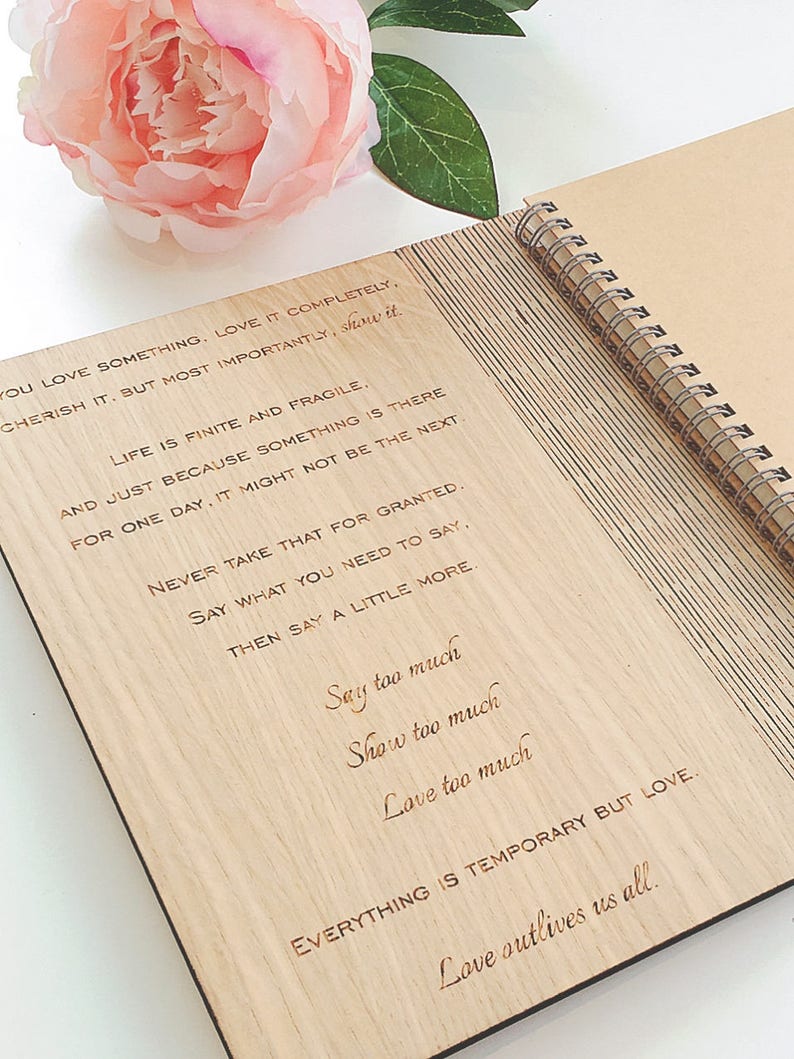 YOU LOVE SOMETHING, LOVE IT COMPLETELY,
CHERISH IT, BUT MOST IMPORTANTLY, show it.
LIFE IS FINITE AND FRAGILE,
AND JUST BECAUSE SOMETHING IS THERE
FOR ONE DAY, IT MIGHT NOT BE THE NEXT.
NEVER TAKE THAT FOR GRANTED.
SAY WHAT YOU NEED TO SAY,
THEN SAY A LITTLE MORE.
Say too much
Show too much
Love too much
EVERYTHING IS TEMPORARY BUT LOVE.
Love outlives us all.